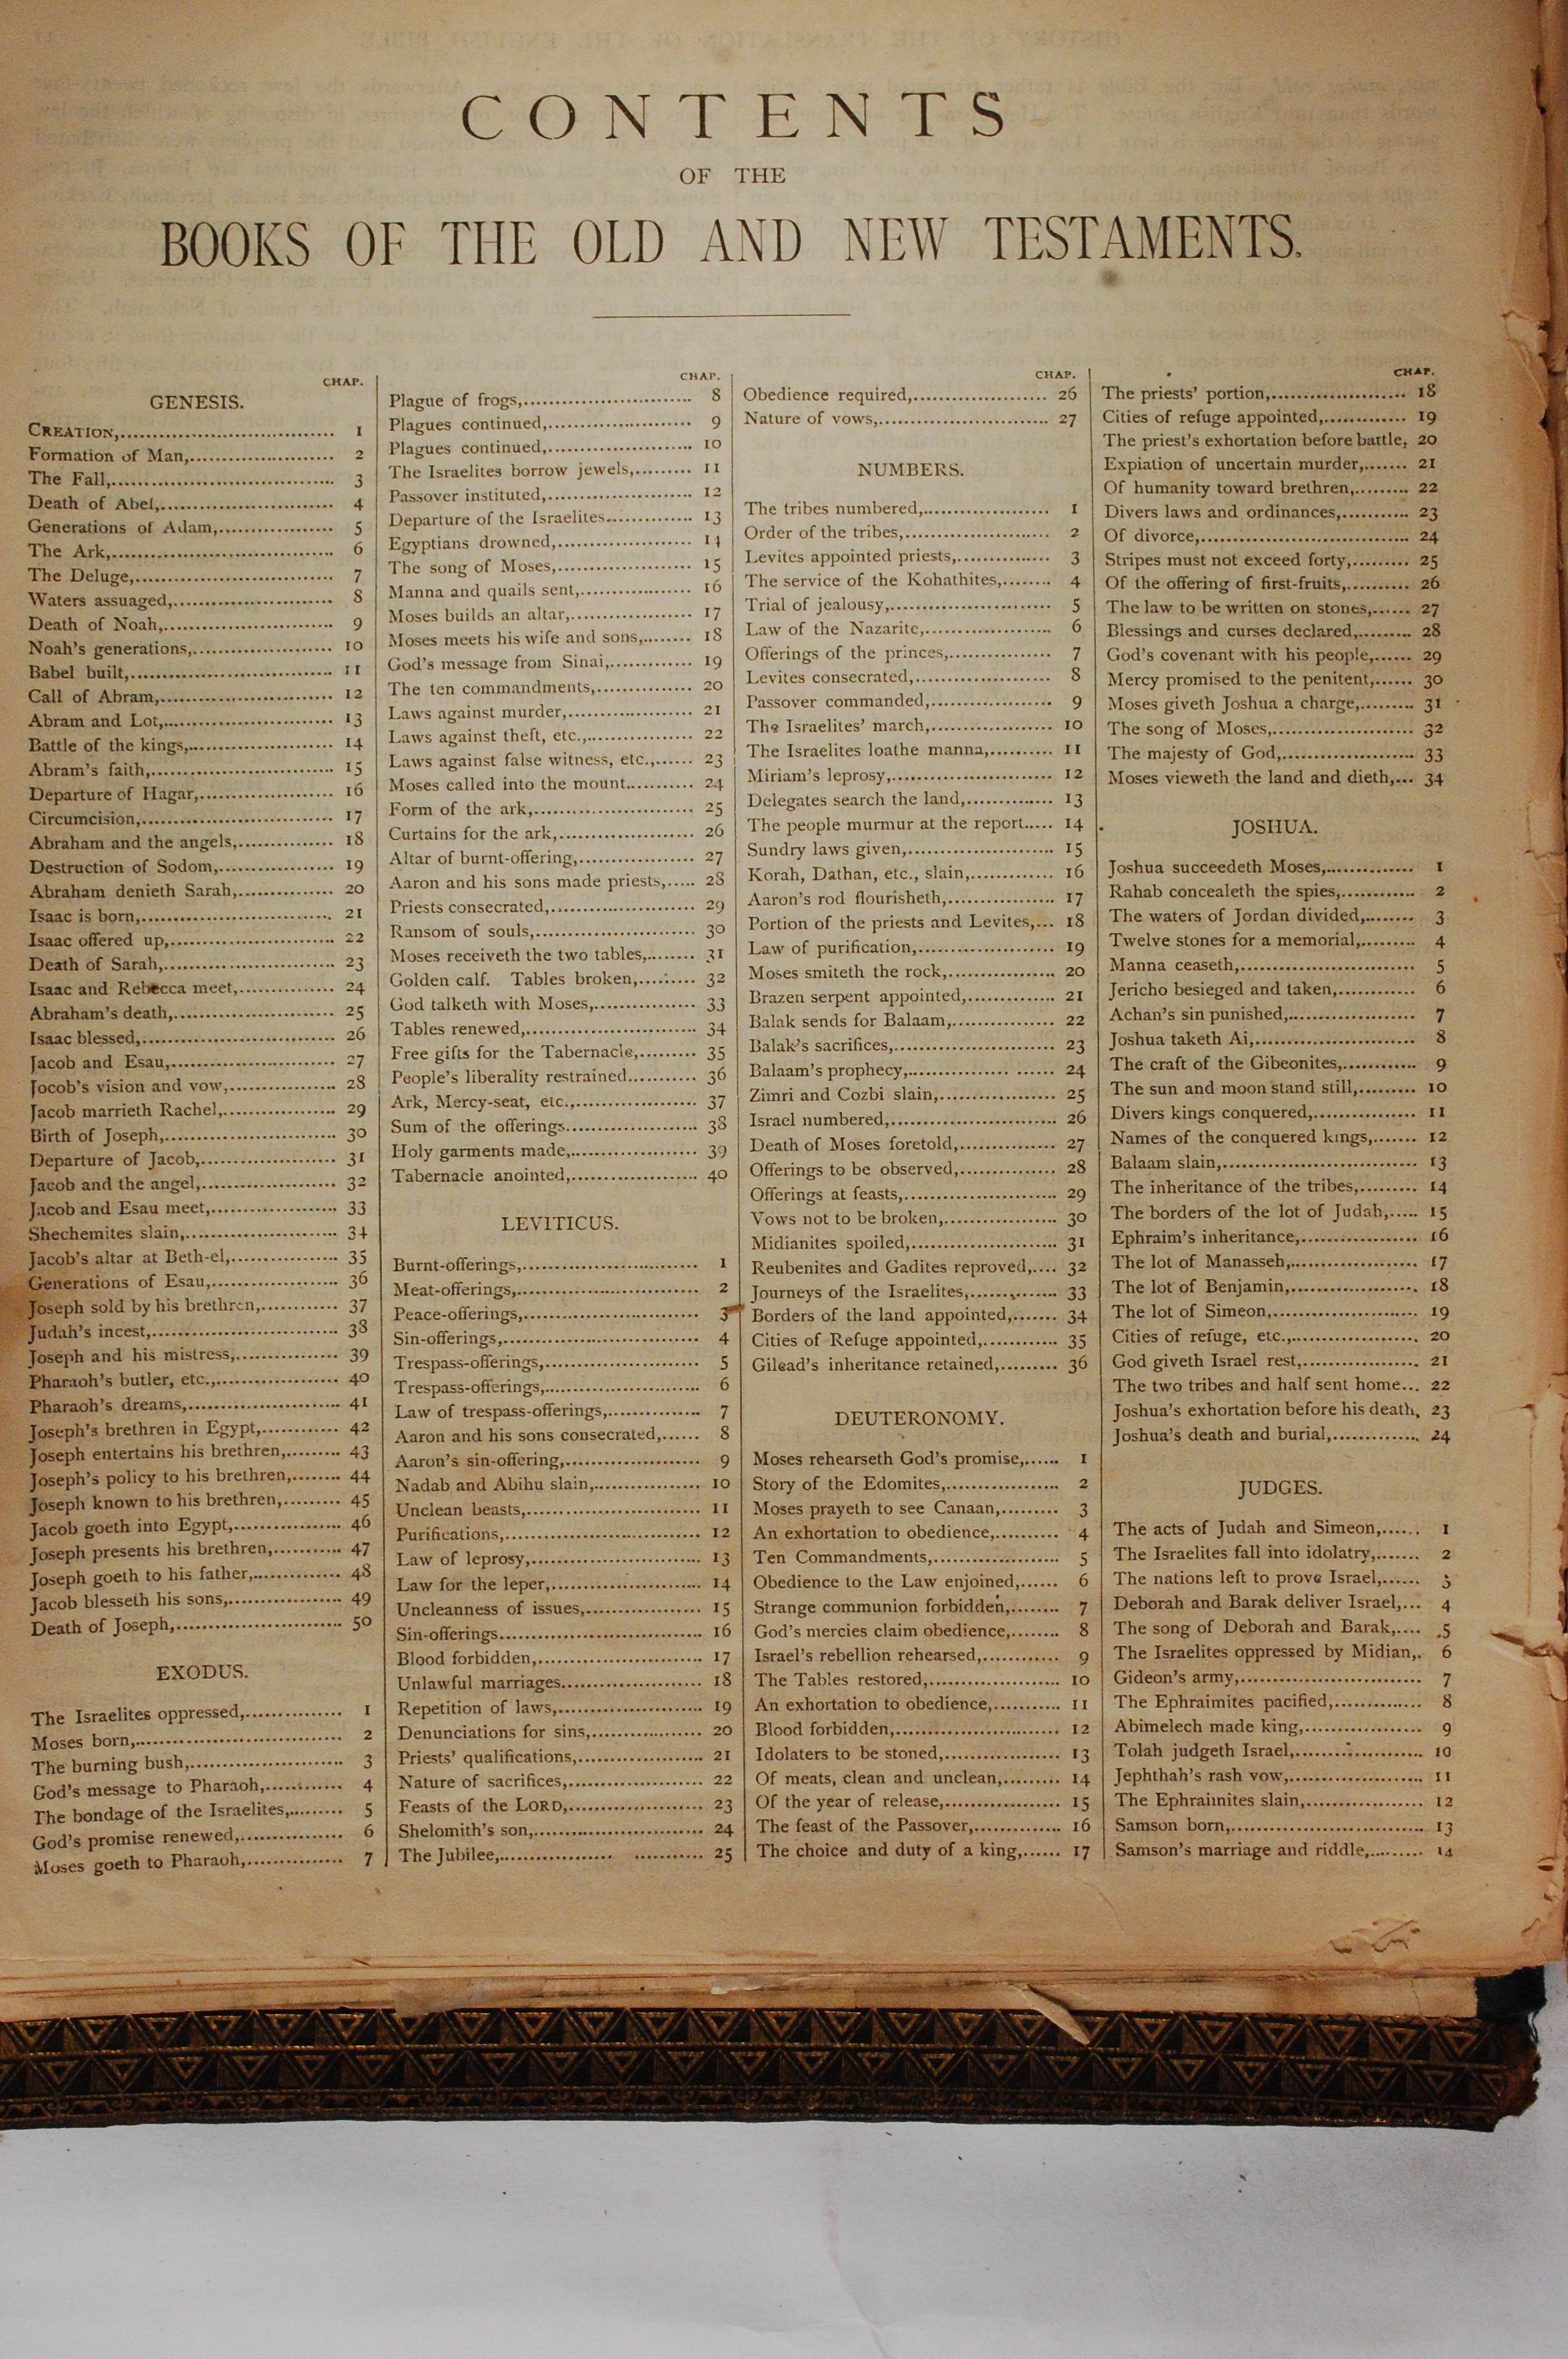 CONTENTS
OF THE
BOOKS OF THE OLD AND NEW TESTAMENTS.
CHAP.
GENESIS.
CREATION,.................................. 1
Formation of Man,....................... 2
The Fall,................................... 3
Death of Abel,........................... 4
Generations of Adam,.................. 5
The Ark,................................... 6
The Deluge,................................ 7
Waters assuaged,......................... 8
Death of Noah,........................... 9
Noah's generations,...................... 10
Babel built,................................ 11
Call of Abram,........................... 12
Abram and Lot,........................... 13
Battle of the kings,....................... 14
Abram's faith,............................. 15
Departure of Hagar,..................... 16
Circumcision,.............................. 17
Abraham and the angels,............... 18
Destruction of Sodom,.................. 19
Abraham denieth Sarah,............... 20
Isaac is born,.............................. 21
Isaac offered up,.......................... 22
Death of Sarah,........................... 23
Isaac and Rebecca meet,............... 24
Abraham's death,......................... 25
Isaac blessed,.............................. 26
Jacob and Esau,........................... 27
Jocob's vision and vow,................. 28
Jacob marrieth Rachel,.................. 29
Birth of Joseph,........................... 30
Departure of Jacob,...................... 31
Jacob and the angel,..................... 32
Jacob and Esau meet,.................... 33
Shechemites slain,........................ 34
Jacob's altar at Beth-el,................. 35
Generations of Esau,.................... 36
Joseph sold by his brethren,............ 37
Judah's incest,............................. 38
Joseph and his mistress,................ 39
Pharaoh's butler, etc.,................... 40
Pharaoh's dreams,........................ 41
Joseph's brethren in Egypt,............ 42
Joseph entertains his brethren,......... 43
Joseph's policy to his brethren,........ 44
Joseph known to his brethren,......... 45
Jacob goeth into Egypt,................. 46
Joseph presents his brethren,........... 47
Joseph goeth to his father,.............. 48
Jacob blesseth his sons,.................. 49
Death of Joseph,.......................... 50
EXODUS.
The Israelites oppressed,............... 1
Moses born,................................ 2
The burning bush,........................ 3
God's message to Pharaoh,............ 4
The bondage of the Israelites,......... 5
God's promise renewed,................ 6
Moses goeth to Pharaoh,............... 7
CHAP.
Plague of frogs,........................... 8
Plagues continued,....................... 9
Plagues continued,....................... 10
The Israelites borrow jewels,......... 11
Passover instituted,....................... 12
Departure of the Israelites.............. 13
Egyptians drowned,...................... 14
The song of Moses,...................... 15
Manna and quails sent,.................. 16
Moses builds an altar,.................... 17
Moses meets his wife and sons,........ 18
God's message from Sinai,............. 19
The ten commandments,............... 20
Laws against murder,.................... 21
Laws against theft, etc.,................. 22
Laws against false witness, etc.,...... 23
Moses called into the mount........... 24
Form of the ark,.......................... 25
Curtains for the ark,...................... 26
Altar of burnt-offering,.................. 27
Aaron and his sons made priests,..... 28
Priests consecrated,....................... 29
Ransom of souls,.......................... 30
Moses receiveth the two tables,........ 31
Golden calf. Tables broken,......... 32
God talketh with Moses,................ 33
Tables renewed,........................... 34
Free gifts for the Tabernacle,......... 35
People's liberality restrained........... 36
Ark, Mercy-seat, etc.,.................... 37
Sum of the offerings...................... 38
Holy garments made,.................... 39
Tabernacle anointed,..................... 40
LEVITICUS.
Burnt-offerings,............................ 1
Meat-offerings,............................. 2
Peace-offerings,............................ 3
Sin-offerings,................................ 4
Trespass-offerings,......................... 5
Trespass-offerings,......................... 6
Law of trespass-offerings,............... 7
Aaron and his sons consecrated,...... 8
Aaron's sin-offering,...................... 9
Nadab and Abihu slain,................. 10
Unclean beasts,............................ 11
Purifications,................................ 12
Law of leprosy,............................ 13
Law for the leper,......................... 14
Uncleanness of issues,................... 15
Sin-offerings................................. 16
Blood forbidden,........................... 17
Unlawful marriages....................... 18
Repetition of laws,........................ 19
Denunciations for sins,.................. 20
Priests' qualifications,.................... 21
Nature of sacrifices,...................... 22
Feasts of the LORD,...................... 23
Shelomith's son,........................... 24
The Jubilee,.................. ........... 25
CHAP.
Obedience required,..................... 26
Nature of vows,........................... 27
NUMBERS.
The tribes numbered,.................... 1
Order of the tribes,....................... 2
Levites appointed priests,............... 3
The service of the Kohathites,........ 4
Trial of jealousy,.......................... 5
Law of the Nazarite,.................... 6
Offerings of the princes,................ 7
Levites consecrated,...................... 8
Passover commanded,................... 9
The Israelites' march,................... 10
The Israelites loathe manna,.......... 11
Miriam's leprosy,.......................... 12
Delegates search the land,.............. 13
The people murmur at the report..... 14
Sundry laws given,....................... 15
Korah, Dathan, etc., slain,............. 16
Aaron's rod flourisheth,................. 17
Portion of the priests and Levites,... 18
Law of purification,...................... 19
Moses smiteth the rock,................. 20
Brazen serpent appointed,.............. 21
Balak sends for Balaam,................ 22
Balak's sacrifices,.......................... 23
Balaam's prophecy,................ ...... 24
Zimri and Cozbi slain,................... 25
Israel numbered,........................... 26
Death of Moses foretold,................ 27
Offerings to be observed,............... 28
Offerings at feasts,........................ 29
Vows not to be broken,.................. 30
Midianites spoiled,....................... 31
Reubenites and Gadites reproved,.... 32
Journeys of the Israelites,.............. 33
Borders of the land appointed,....... 34
Cities of Refuge appointed,............ 35
Gilead's inheritance retained,......... 36
DEUTERONOMY.
Moses rehearseth God's promise,...... 1
Story of the Edomites,.................. 2
Moses prayeth to see Canaan,......... 3
An exhortation to obedience,.......... 4
Ten Commandments,.................... 5
Obedience to the Law enjoined,...... 6
Strange communion forbidden,........ 7
God's mercies claim obedience,........ 8
Israel's rebellion rehearsed,............ 9
The Tables restored,..................... 10
An exhortation to obedience,........... 11
Blood forbidden,.......................... 12
Idolaters to be stoned,................... 13
Of meats, clean and unclean,......... 14
Of the year of release,................... 15
The feast of the Passover,.............. 16
The choice and duty of a king,...... 17
CHAP.
The priests' portion,..................... 18
Cities of refuge appointed,............. 19
The priest's exhortation before battle, 20
Expiation of uncertain murder,....... 21
Of humanity toward brethren,......... 22
Divers laws and ordinances,........... 23
Of divorce,................................. 24
Stripes must not exceed forty,......... 25
Of the offering of first-fruits,.......... 26
The law to be written on stones,...... 27
Blessings and curses declared,......... 28
God's covenant with his people,...... 29
Mercy promised to the penitent,...... 30
Moses giveth Joshua a charge,......... 31
The song of Moses,...................... 32
The majesty of God,..................... 33
Moses vieweth the land and dieth,... 34
JOSHUA.
Joshua succeedeth Moses,.............. 1
Rahab concealeth the spies,............ 2
The waters of Jordan divided,........ 3
Twelve stones for a memorial,......... 4
Manna ceaseth,............................ 5
Jericho besieged and taken,............ 6
Achan's sin punished,.................... 7
Joshua taketh Ai,.......................... 8
The craft of the Gibeonites,............ 9
The sun and moon stand still,......... 10
Divers kings conquered,................ 11
Names of the conquered kings,....... 12
Balaam slain,............................... 13
The inheritance of the tribes,......... 14
The borders of the lot of Judah,..... 15
Ephraim's inheritance,................... 16
The lot of Manasseh,.................... 17
The lot of Benjamin,..................... 18
The lot of Simeon,....................... 19
Cities of refuge, etc.,.................... 20
God giveth Israel rest,................... 21
The two tribes and half sent home... 22
Joshua's exhortation before his death, 23
Joshua's death and burial,.............. 24
JUDGES.
The acts of Judah and Simeon,...... 1
The Israelites fall into idolatry,....... 2
The nations left to prove Israel,...... 3
Deborah and Barak deliver Israel,... 4
The song of Deborah and Barak,.... 5
The Israelites oppressed by Midian,. 6
Gideon's army,............................. 7
The Ephraimites pacified,.............. 8
Abimelech made king,................... 9
Tolah judgeth Israel,..................... 10
Jephthah's rash vow,..................... 11
The Ephraimites slain,................... 12
Samson born,............................... 13
Samson's marriage and riddle,......... 14